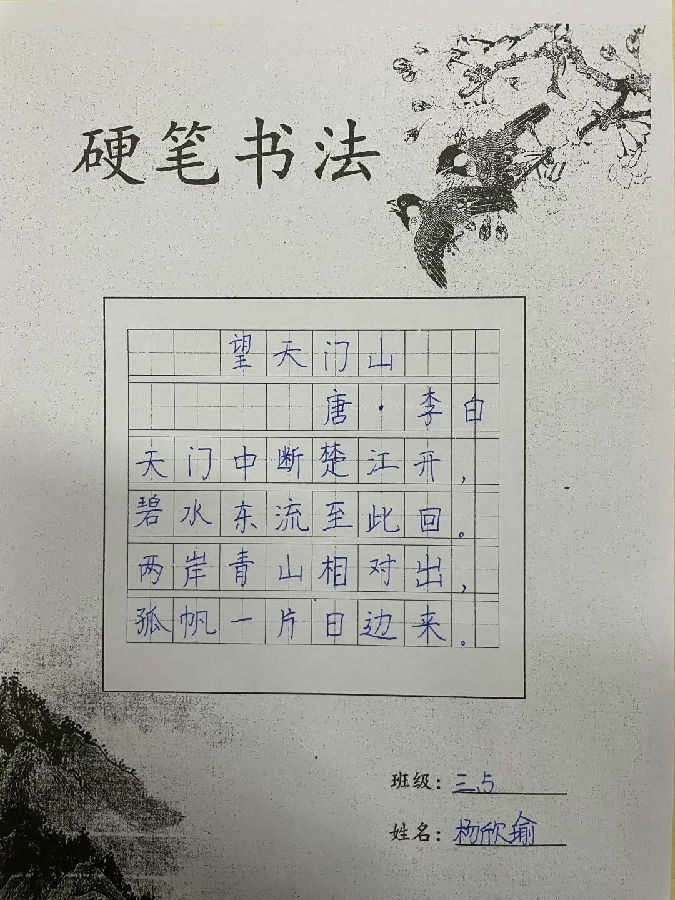 硬笔书法
望天门山
唐·李白
天门中断楚江开，
碧水东流至此回。
两岸青山相对出，
孤帆一片日边来。
班级：三、5
姓名：杨欣瑜